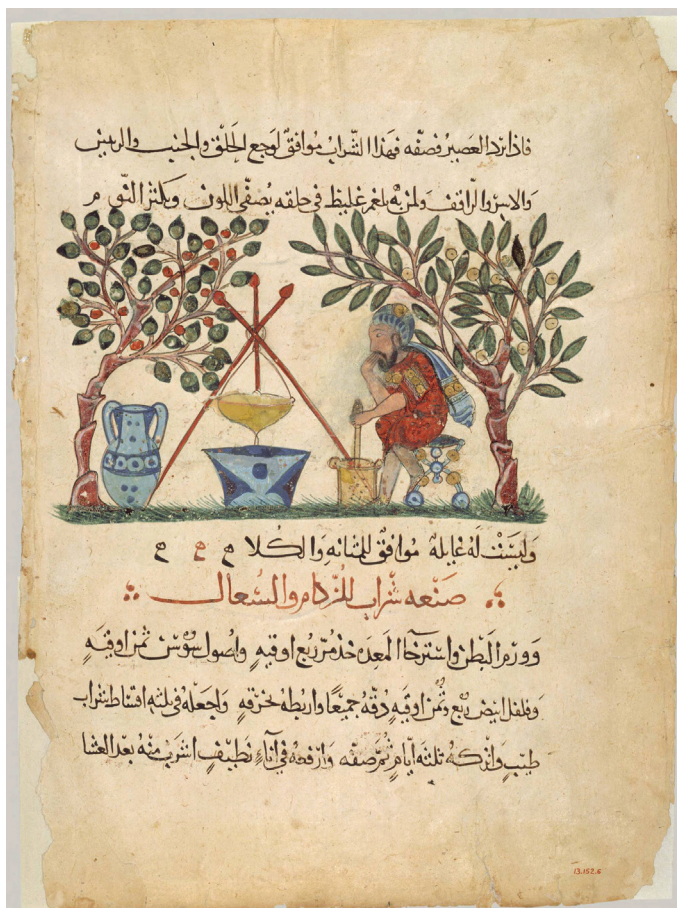 فاذا برد العصير فصفّه فهذا الشراب موافق لوجع الحلق والجنب والريتين
ولمن به بلغم غليظ في حلقه يصفّي اللون ويكثر النوم
وليست له غايلة موافق للمثانه والكلا
صنعه شراب للزكام والسعال
وورم البطن واسترخا المعده خذ مرّ ربع اوقيه واصول سوسن ثمن اوقيه
وفلفل ابيض ربع وثمن اوقيه دقه جميعًا واربطه بخرقه واجعله في ثلثه اقساط شراب
طيّب واتركه ثلثه ايام ثم صفّه وارفعه في اناءٍ نظيفٍ اشرب منه بعد العشا
13.152.6